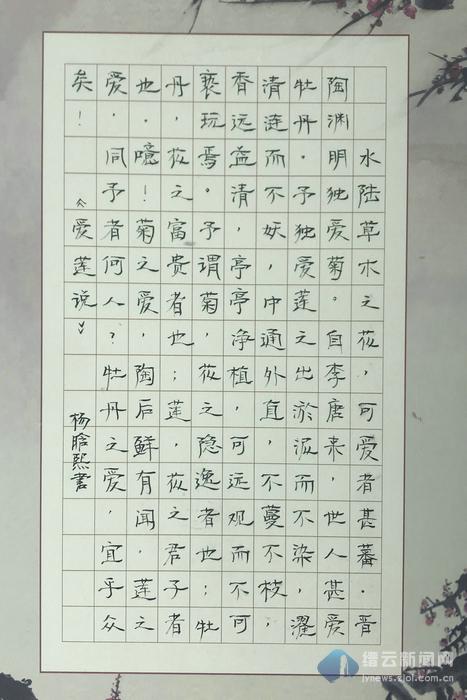 水陆草木之花，可爱者甚蕃．晋
陶渊明独爱菊。自李唐来，世人甚爱
牡丹．予独爱莲之出淤泥而不染，濯
清涟而不妖，中通外直，不蔓不枝，
香远益清，亭亭净植，可远观而不可
亵玩焉。予谓菊，花之隐逸者也；牡
丹，花之富贵者也；莲，花之君子者
也．噫！菊之爱，陶后鲜有闻．莲之
爱．同予者何人？牡丹之爱，宜乎众
矣！《爱莲说》
杨晗熙書
缙云新闻网
jynews.zjol.com.cn